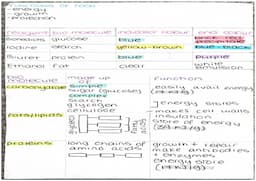 FUNCTIONS OF FOOD
- energy
- growth
- protection
reagent bio molecule indicator colour end colour
benedicts glucose blue brick red precipitate
iodine starch yellow-brown blue-black
Biuret protein blue purple
Ethanol fat clear white emulsion
bio molecule made up of function
carbohydrate simple sugar (glucose) easily avail energy
complex
starch
glycogen
cellulose
energy stores
makes cell walls
fats/lipids insulation
store of energy
proteins long chains of amino acids growth + repair
make antibodies
+ enzymes
energy store